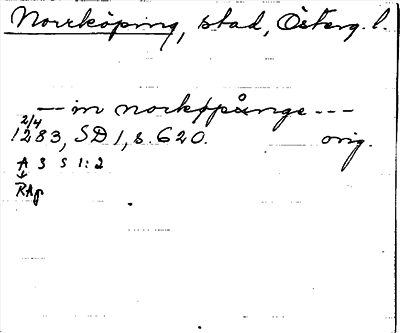 Norrköping, stad, Österg. l.
— in norkøpånge ---
2/4
1283, SD 1, s. 620. orig.
A 3 S 1:2
↓
RAp